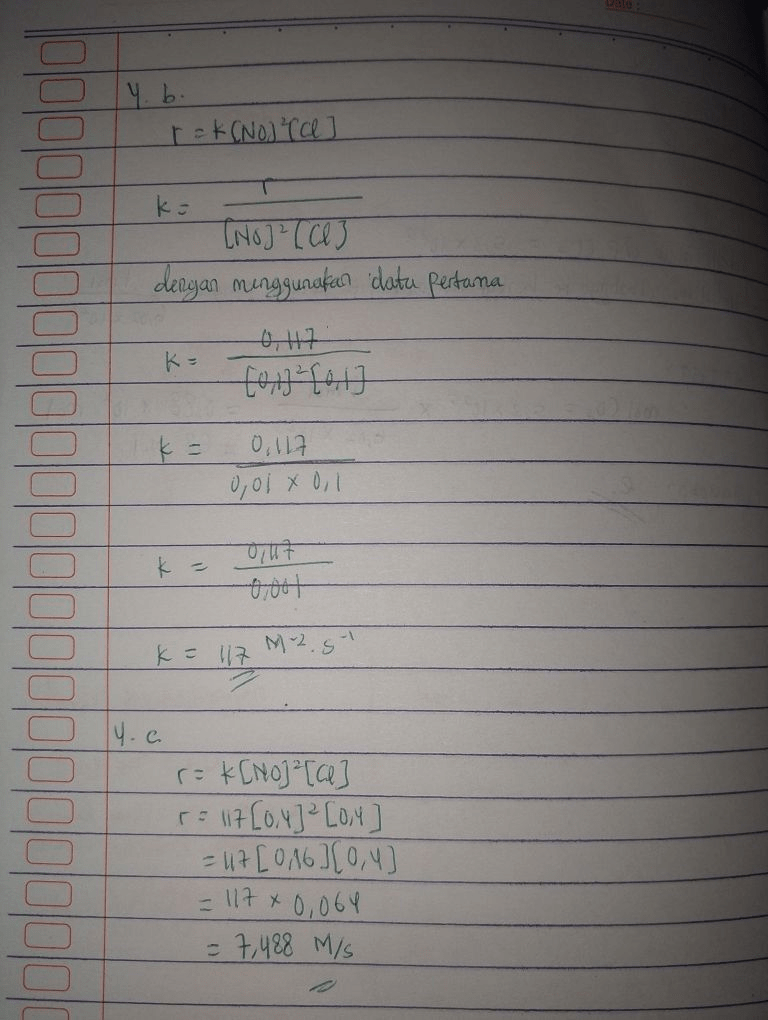 Date :
4. b.
r = k[NO]²[Cl]
k = r / [NO]²[Cl]
dengan menggunakan data pertama
k = 0,117 / [0,1]²[0,1]
k = 0,117 / 0,01 x 0,1
k = 0,117 / 0,001
k = 117 M⁻².s⁻¹
4. c.
r = k[NO]²[Cl]
r = 117[0,4]²[0,4]
= 117[0,16][0,4]
= 117 x 0,064
= 7,488 M/s